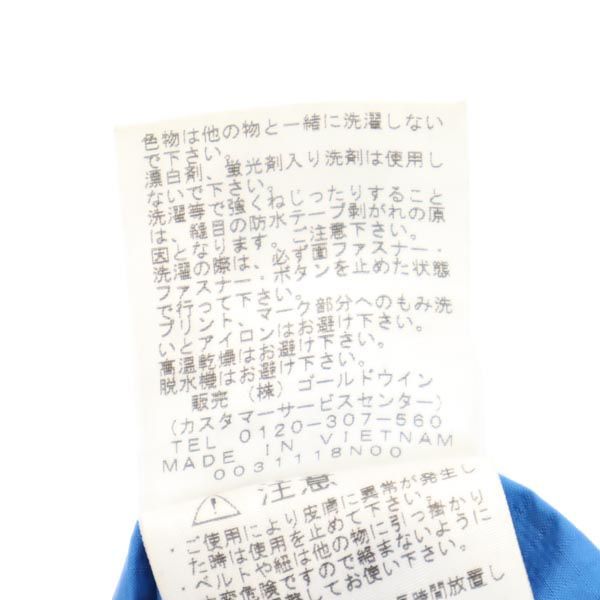 色物は他の物と一緒に洗濯しない
で下さい。
漂白剤、蛍光剤入り洗剤は使用し
ないで下さい。
洗濯等で強くねじったりすること
は、縫目の防水テープ剥がれの原
因となります。ご注意下さい。
洗濯の際は、必ず面ファスナー・
ファスナー・ボタンを止めた状態
で行って下さい。
プリント、マーク部分へのもみ洗
いとアイロンはお避け下さい。
高温乾燥はお避け下さい。
脱水機はお避け下さい。
販売 (株) ゴールドウイン
(カスタマーサービスセンター)
TEL 0120-307-560
MADE IN VIETNAM
0031118N00
注意
・ご使用により皮膚に異常が発生し
た時は使用を止めて下さい。
・ベルトや紐は他の物に引っ掛かり
大変危険ですので絡まないように
してお使い下さい。
時間放置し